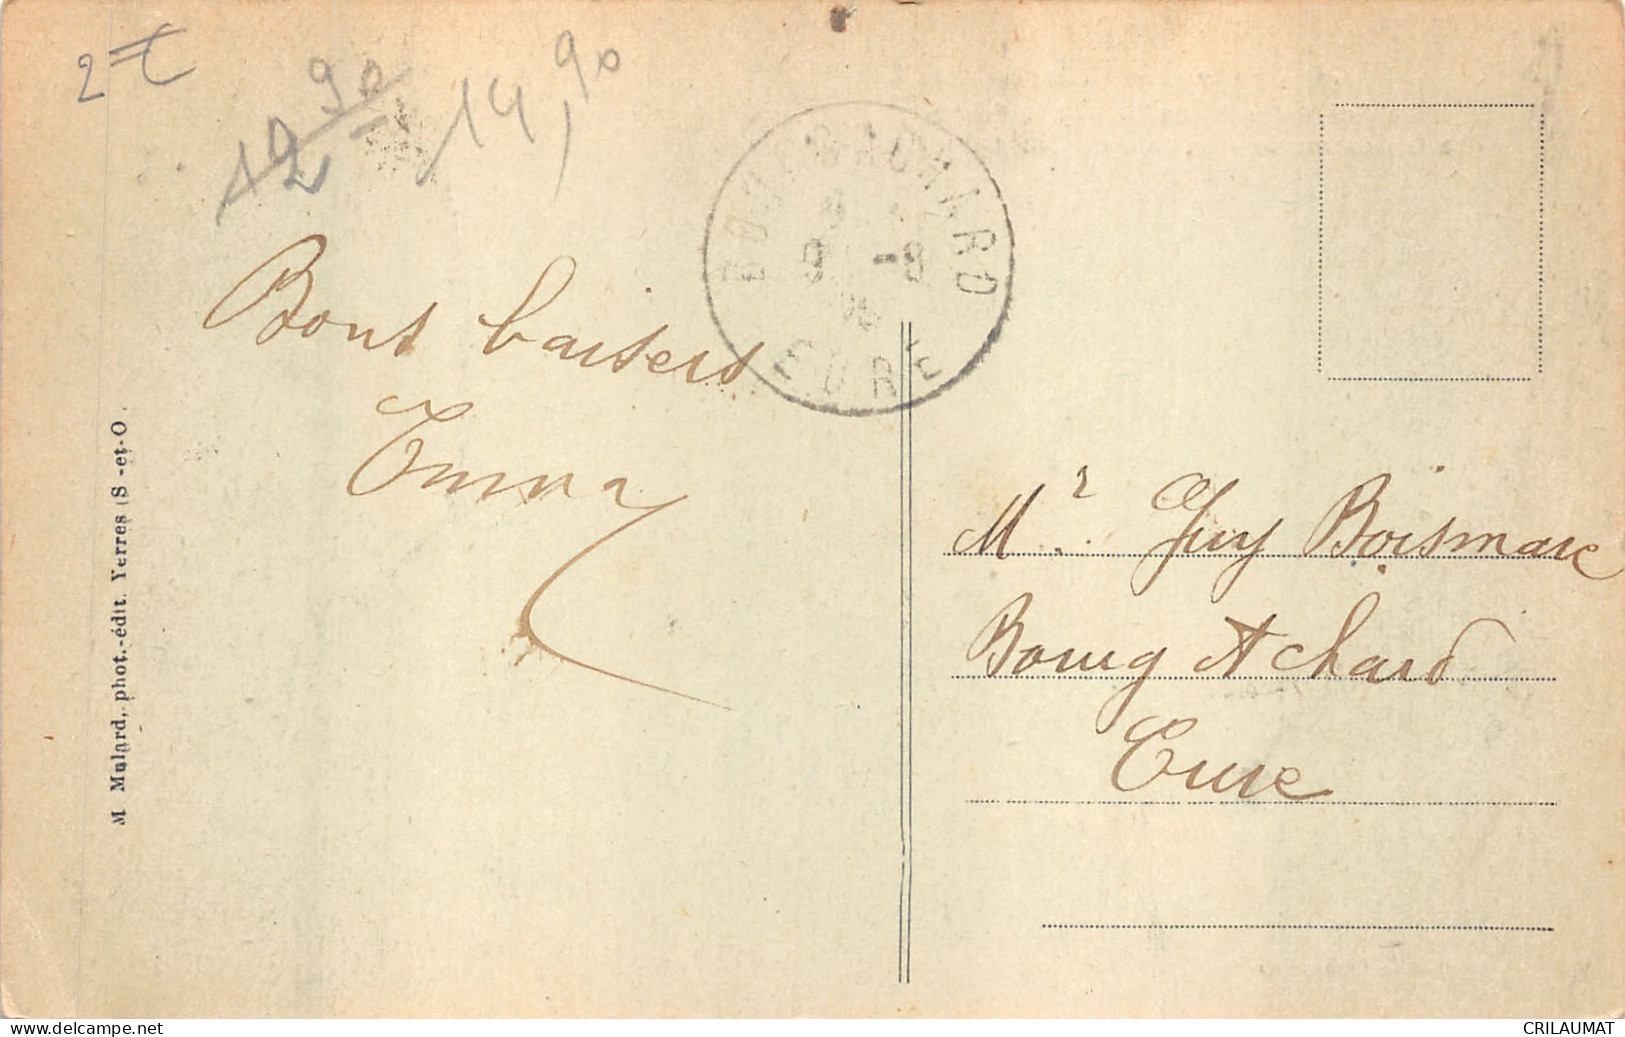 2€
12 90
14,90
BOURGACHARD
9 -8
EURE
Bons baisers
Emma
M Mulard, phot.-édit. Yerres (S-et-O.
Mr. Guy Boismare
Bourg Achard
Eure
www.delcampe.net
CRILAUMAT